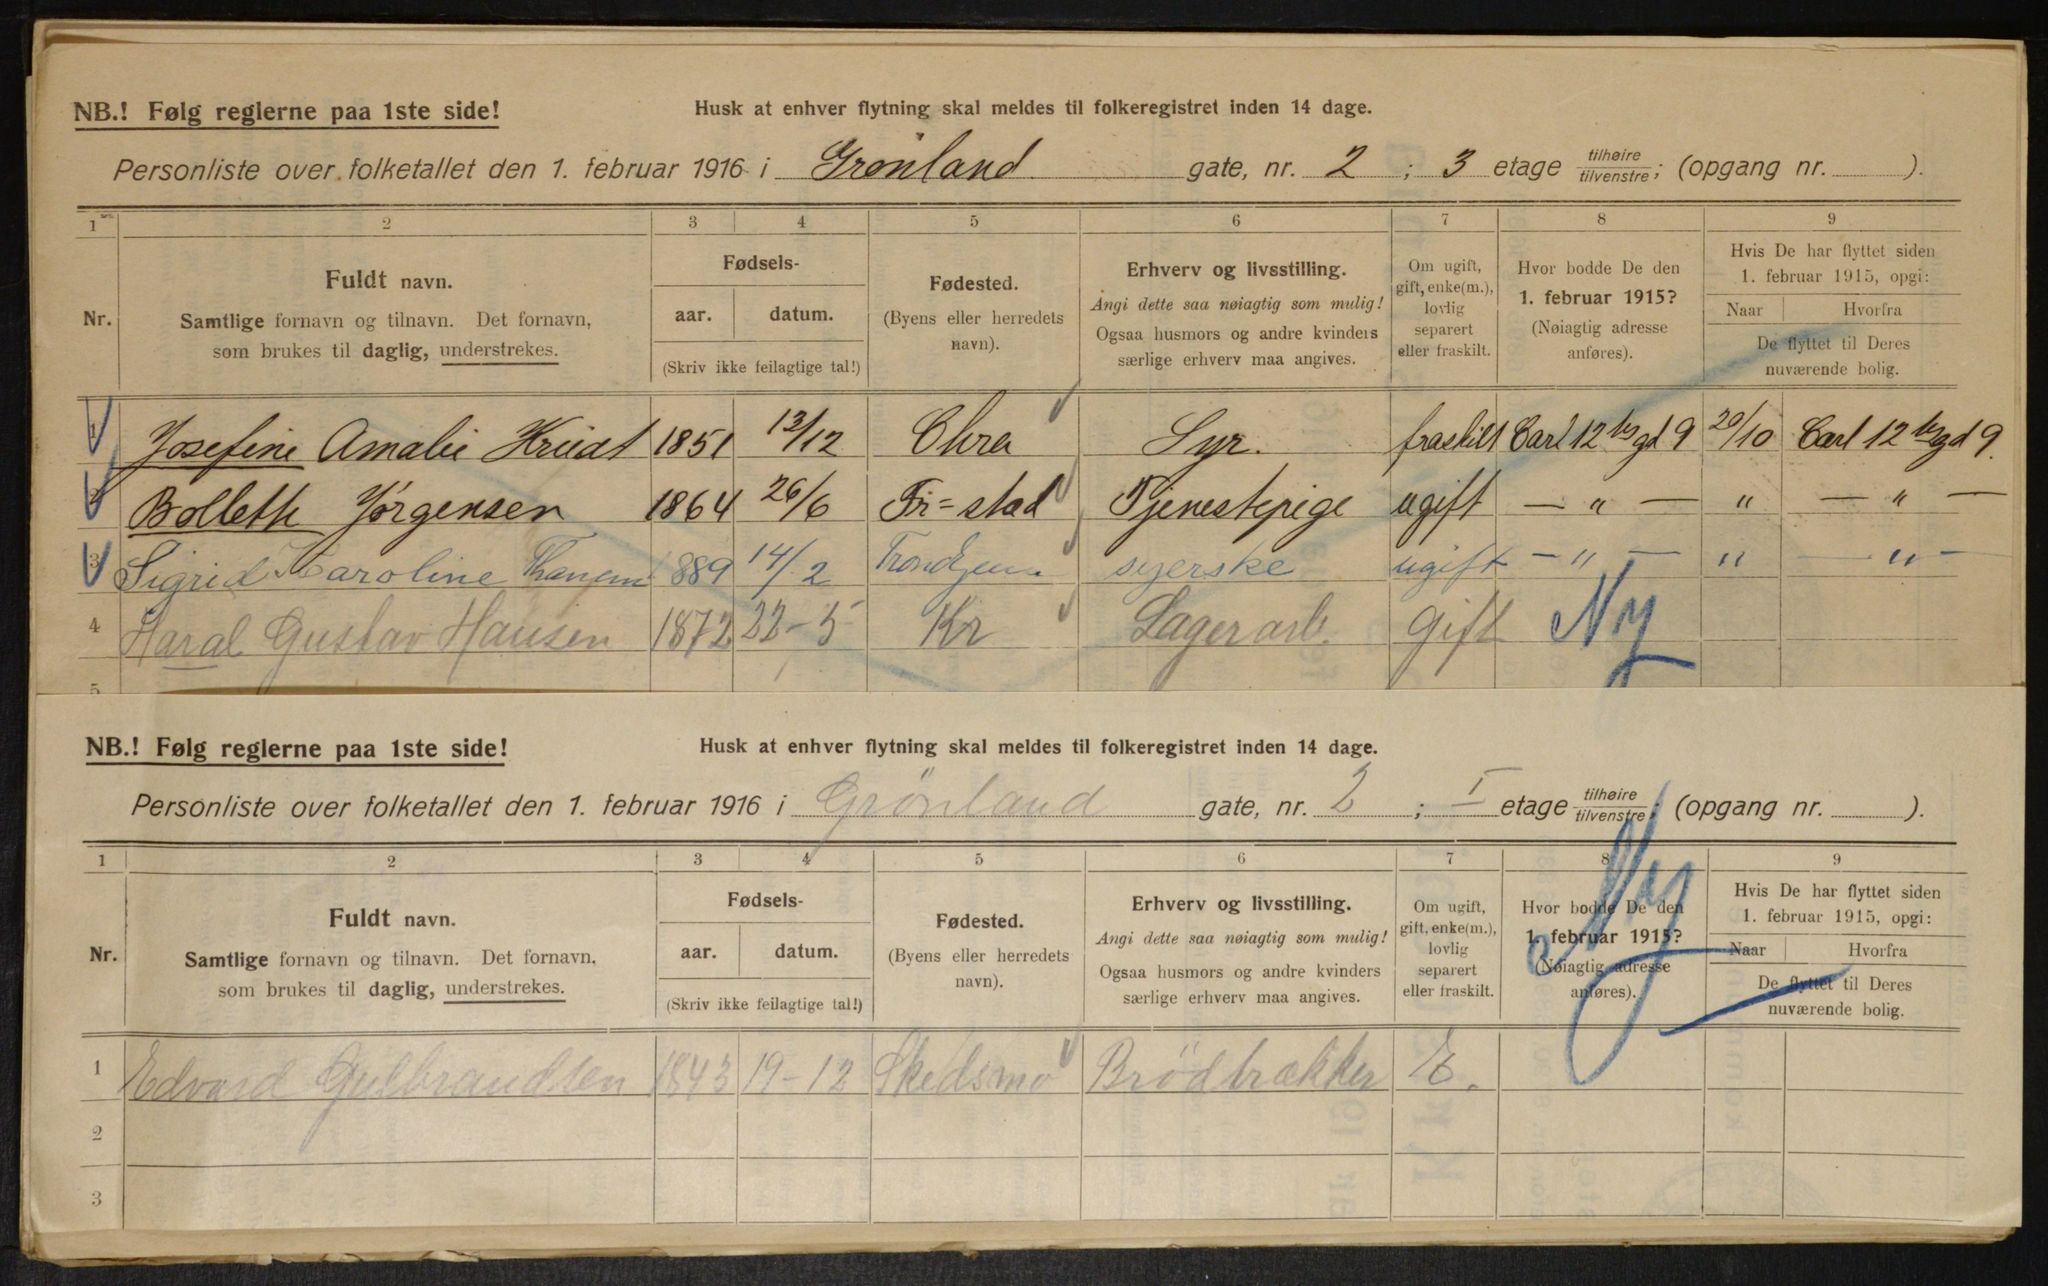 NB.! Følg reglerne paa 1ste side! Husk at enhver flytning skal meldes til folkeregistret inden 14 dage.
Personliste over folketallet den 1. februar 1916 i Grønland gate, nr. 2 ; 3 etage tilhøire tilvenstre ; (opgang nr. ).
1 2 3 4 5 6 7 8 9
Nr.
Fuldt navn.
Samtlige fornavn og tilnavn. Det fornavn,
som brukes til daglig, understrekes.
Fødsels-
aar. datum.
(Skriv ikke feilagtige tal!)
Fødested.
(Byens eller herredets
navn).
Erhverv og livsstilling.
Angi dette saa nøiagtig som mulig!
Ogsaa husmors og andre kvinders
særlige erhverv maa angives.
Om ugift,
gift, enke(m.),
lovlig
separert
eller fraskilt.
Hvor bodde De den
1. februar 1915?
(Nøiagtig adresse
anføres).
Hvis De har flyttet siden
1. februar 1915, opgi:
Naar Hvorfra
De flyttet til Deres
nuværende bolig.
1 Josefine Amalie 1851 13/12 Chra Syr. fraskilt Carl 12 gd 9 20/10 Carl 12 gd 9.
2 Bollette Jørgensen 1864 26/6 Fr=stad Tjenestepige ugift — " — " — " —
3 Sigrid Karoline 1889 14/2 Trondjem syerske ugift — " — " — " —
4 Haral Gustav Hansen 1872 22-5 Kr Lagerarb. Gift Ny
5
NB.! Følg reglerne paa 1ste side! Husk at enhver flytning skal meldes til folkeregistret inden 14 dage.
Personliste over folketallet den 1. februar 1916 i Grönland gate, nr. 2 ; I etage tilhøire tilvenstre ; (opgang nr. ).
1 2 3 4 5 6 7 8 9
Nr.
Fuldt navn.
Samtlige fornavn og tilnavn. Det fornavn,
som brukes til daglig, understrekes.
Fødsels-
aar. datum.
(Skriv ikke feilagtige tal!)
Fødested.
(Byens eller herredets
navn).
Erhverv og livsstilling.
Angi dette saa nøiagtig som mulig!
Ogsaa husmors og andre kvinders
særlige erhverv maa angives.
Om ugift,
gift, enke(m.),
lovlig
separert
eller fraskilt.
Hvor bodde De den
1. februar 1915?
(Nøiagtig adresse
anføres).
Ny
Hvis De har flyttet siden
1. februar 1915, opgi:
Naar Hvorfra
De flyttet til Deres
nuværende bolig.
1 Edvard Gulbrandsen 1843 19-12 Skedsmo Brödtrækker E.
2
3